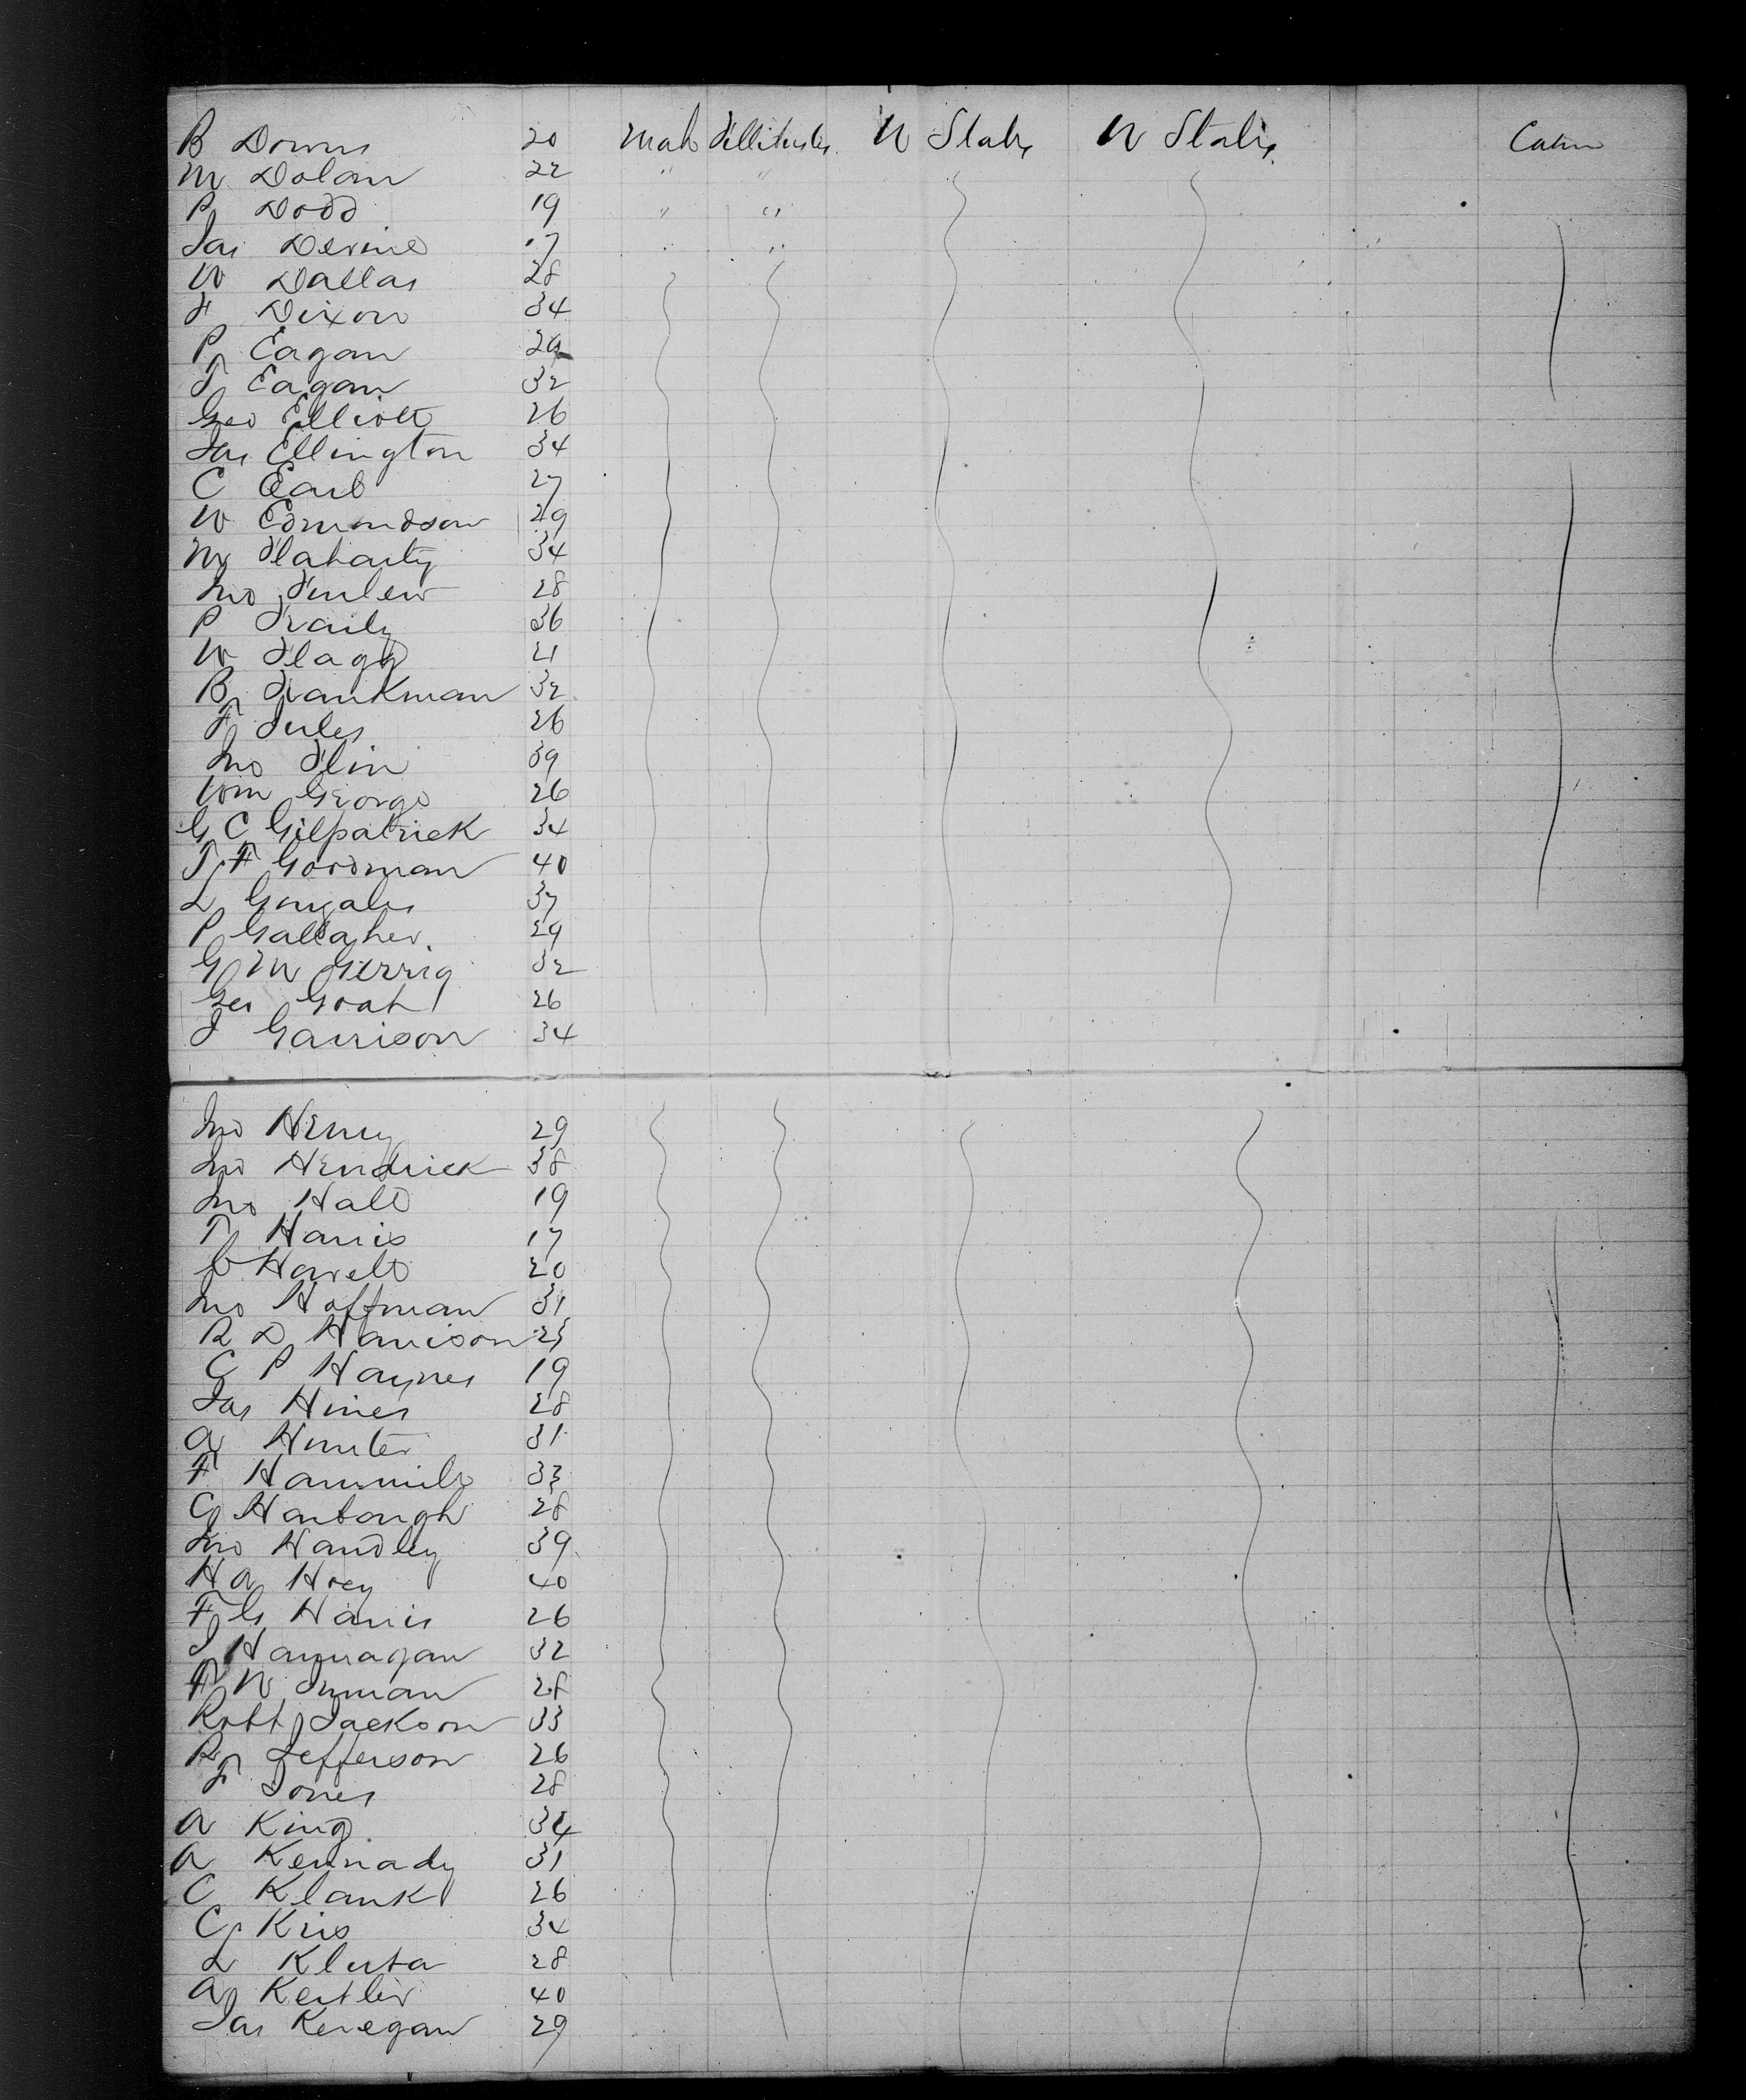 B Downs 20 Male U States U States Cabin
M Dolan 22 " "
P Dodd 19 " "
Jas Devine 17 " "
W Dallas 28
F Dixon 34
P Eagan 29
T Eagan 32
Geo Elliott 26
Jas Ellington 34
C Earl 27
W Edmondson 29
M Flaharty 34
Jno 28
P 36
W Flagg 21
B Frankman 32
F Jules 26
Jno Flin 39
Wm George 26
G C Gilpatrick 34
T F Goodman 40
L Gonzales 37
P Gallagher 29
G W Gerrig 32
Geo Groat 26
J Garrison 34
Jno Henry 29
Jno Hendrick 38
Jno Hall 19
T Harris 17
20
Jno Hoffman 31
R D Harrison 23
C P Haynes 19
Jas Hines 28
A Hunter 31
F Hammill 33
C Harbough 28
Jno Handley 39
H A Hoey 40
F G Harris 26
J Hannagan 32
F W Inman 28
Robt Jackson 33
R Jefferson 26
F Jones 28
A King 34
A Kennady 31
C Klank 26
C Kris 34
L Kluta 28
A 40
Jas Kenegan 29